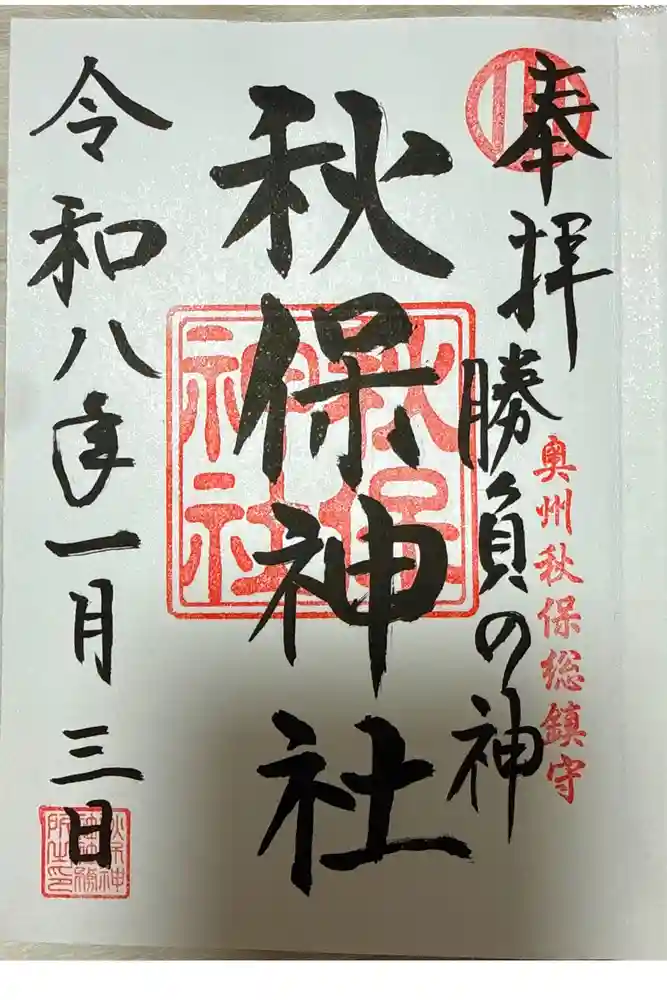 奉拝
勝負の神
奥州秋保総鎮守
秋保神社
秋保
神社
令和八年一月三日